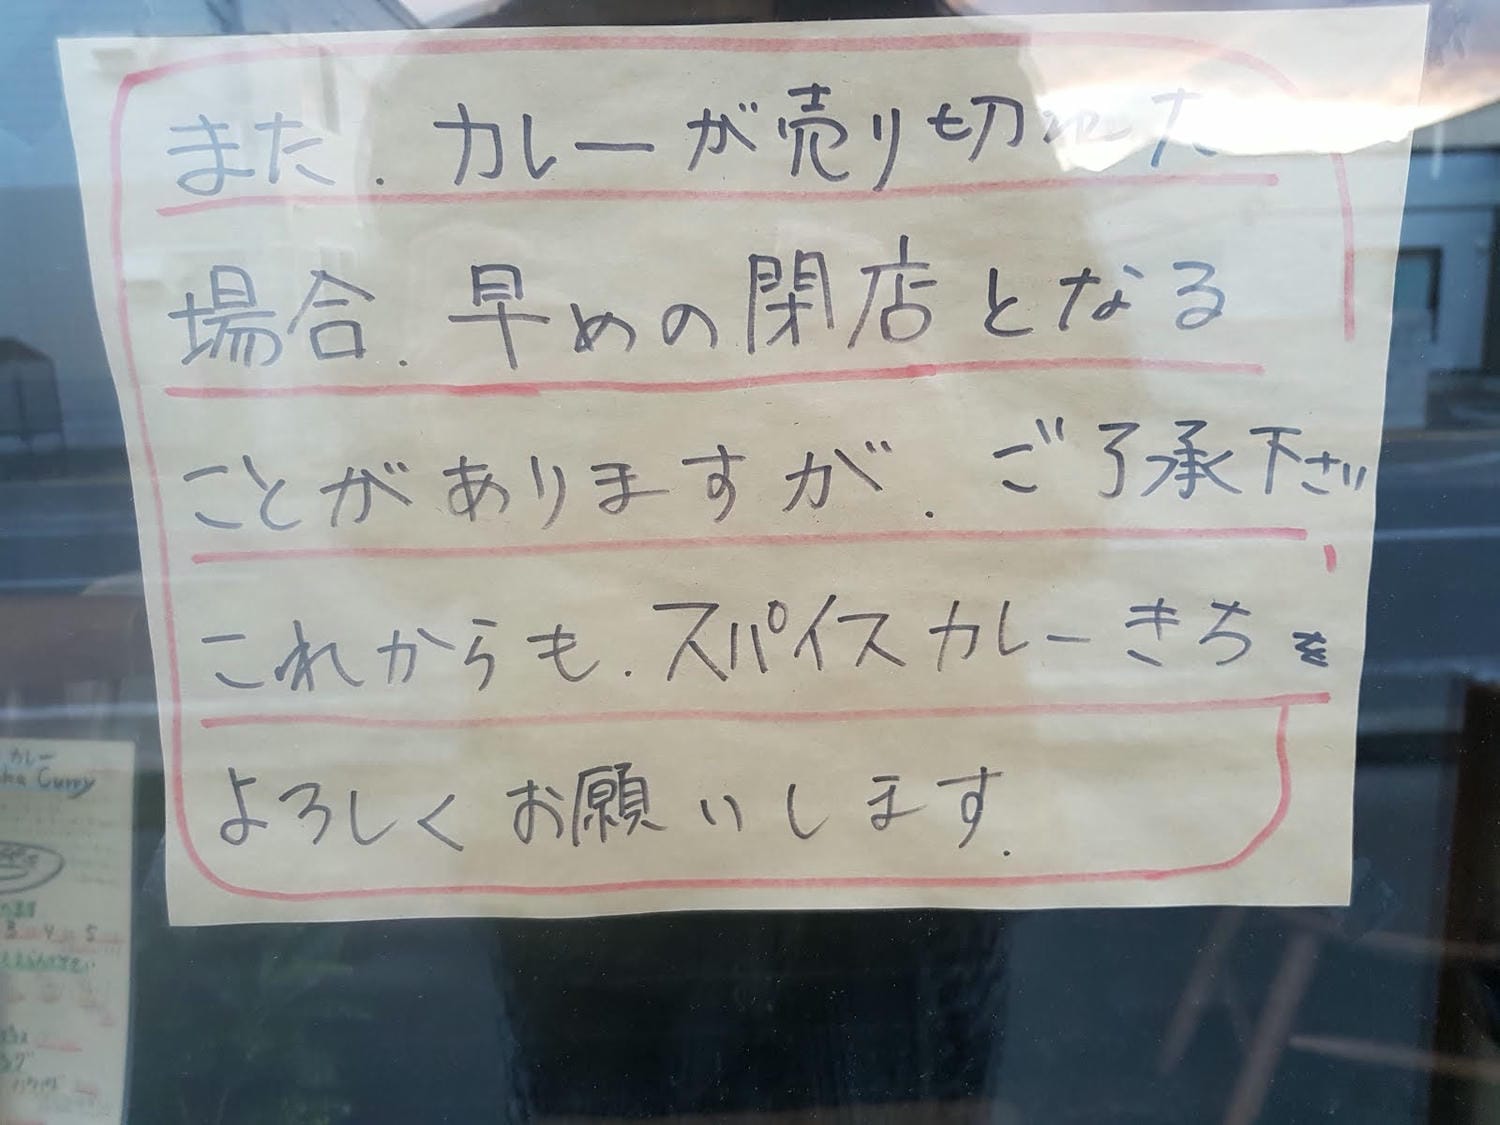 また.カレーが売り切れた
場合.早めの閉店となる
ことがありますが.ご了承下さい
これからも.スパイスカレーきちを
よろしくお願いします.
カレー
Curry
3 4 5